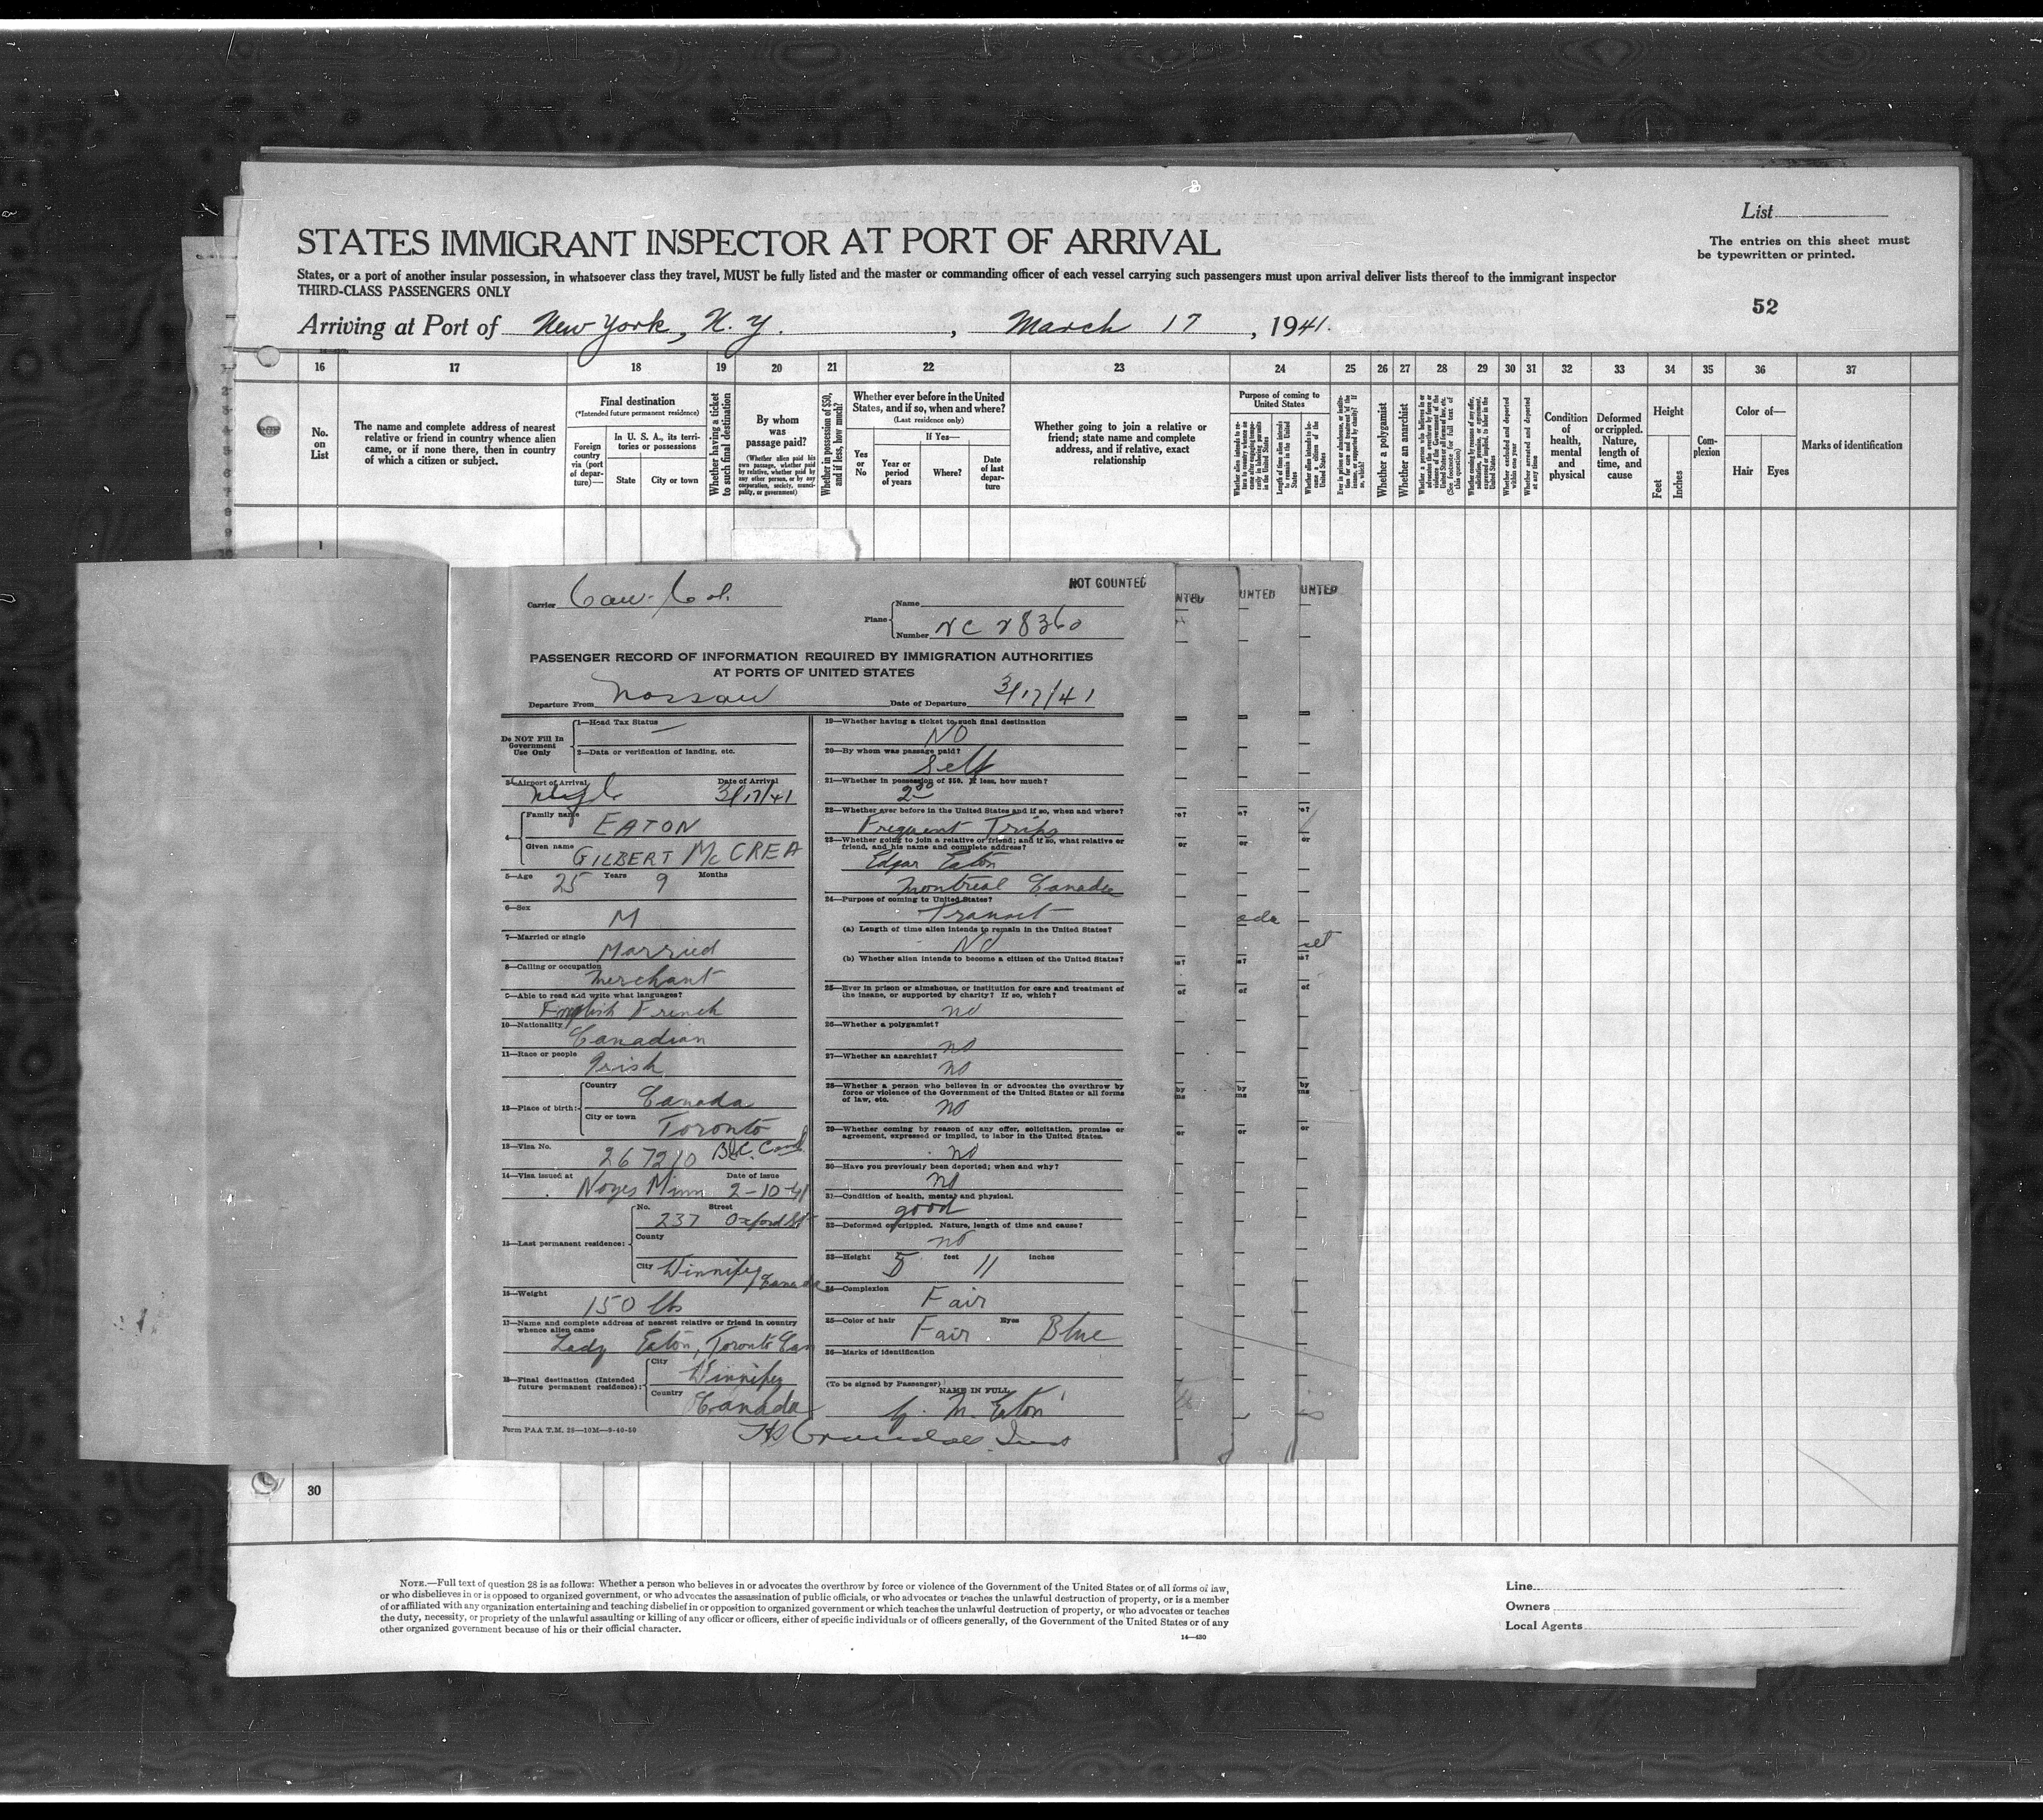 List
STATES IMMIGRANT INSPECTOR AT PORT OF ARRIVAL
The entries on this sheet must
be typewritten or printed.
States, or a port of another insular possession, in whatsoever class they travel, MUST be fully listed and the master or commanding officer of each vessel carrying such passengers must upon arrival deliver lists thereof to the immigrant inspector
THIRD-CLASS PASSENGERS ONLY
52
Arriving at Port of New York, N. Y., March 17, 1941.
16 17 18 19 20 21 22 23 24 25 26 27 28 29 30 31 32 33 34 35 36 37
No.
on
List
The name and complete address of nearest
relative or friend in country whence alien
came, or if none there, then in country
of which a citizen or subject.
Final destination
(*Intended future permanent residence)
Foreign
country
via (port
of depar-
ture)—
In U. S. A., its terri-
tories or possessions
State City or town
Whether having a ticket
to such final destination
By whom
was
passage paid?
(Whether alien paid his
own passage, whether paid
by relative, whether paid by
any other person, or by any
corporation, society, munici-
pality, or government)
Whether in possession of $50,
and if less, how much?
Whether ever before in the United
States, and if so, when and where?
(Last residence only)
Yes
or
No
If Yes—
Year or
period
of years
Where?
Date
of last
depar-
ture
Whether going to join a relative or
friend; state name and complete
address, and if relative, exact
relationship
Purpose of coming to
United States
Whether a polygamist
Whether an anarchist
Whether arrested and deported
at any time
Condition
of
health,
mental
and
physical
Deformed
or crippled.
Nature,
length of
time, and
cause
Height
Feet
Inches
Com-
plexion
Color of—
Hair Eyes
Marks of identification
1
NOT COUNTED
Carrier
Plane
Name
Number NC 28360
PASSENGER RECORD OF INFORMATION REQUIRED BY IMMIGRATION AUTHORITIES
AT PORTS OF UNITED STATES
Departure From Nassau Date of Departure 3/17/41
Do NOT Fill In
Government
Use Only
1—Head Tax Status
2—Data or verification of landing, etc.
3—Airport of Arrival Date of Arrival
3/17/41
4— Family name EATON
Given name GILBERT McCREA
5—Age 25 Years 9 Months
6—Sex M
7—Married or single Married
8—Calling or occupation Merchant
9—Able to read and write what languages?
English French
10—Nationality Canadian
11—Race or people Irish
12—Place of birth: Country Canada
City or town Toronto
13—Visa No. 267210 B.C. Card
14—Visa issued at Noyes Minn Date of issue 2-10-41
15—Last permanent residence:
No. 237 Street Oxford St
County
City Winnipeg, Canada
16—Weight 150 lbs
17—Name and complete address of nearest relative or friend in country
whence alien came
Lady Eaton, Toronto Can
18—Final destination (Intended
future permanent residence):
City Winnipeg
Country Canada
Form PAA T.M. 28—10M—9-40-50
19—Whether having a ticket to such final destination
NO
20—By whom was passage paid?
Self
21—Whether in possession of $50. If less, how much?
22—Whether ever before in the United States and if so, when and where?
Frequent Trips
23—Whether going to join a relative or friend; and if so, what relative or
friend, and his name and complete address?
Edgar Eaton
Montreal Canada
24—Purpose of coming to United States?
Transit
(a) Length of time alien intends to remain in the United States?
No
(b) Whether alien intends to become a citizen of the United States?
25—Ever in prison or almshouse, or institution for care and treatment of
the insane, or supported by charity? If so, which?
no
26—Whether a polygamist?
no
27—Whether an anarchist?
no
28—Whether a person who believes in or advocates the overthrow by
force or violence of the Government of the United States or all forms
of law, etc.
no
29—Whether coming by reason of any offer, solicitation, promise or
agreement, expressed or implied, to labor in the United States.
no
30—Have you previously been deported; when and why?
no
31—Condition of health, mental and physical.
good
32—Deformed or crippled. Nature, length of time and cause?
no
33—Height 5 feet 11 inches
34—Complexion
Fair
35—Color of hair Fair Eyes Blue
36—Marks of identification
(To be signed by Passenger)
NAME IN FULL
G. M. Eaton
30
NOTE.—Full text of question 28 is as follows: Whether a person who believes in or advocates the overthrow by force or violence of the Government of the United States or of all forms of law,
or who disbelieves in or is opposed to organized government, or who advocates the assassination of public officials, or who advocates or teaches the unlawful destruction of property, or is a member
of or affiliated with any organization entertaining and teaching disbelief in or opposition to organized government or which teaches the unlawful destruction of property, or who advocates or teaches
the duty, necessity, or propriety of the unlawful assaulting or killing of any officer or officers, either of specific individuals or of officers generally, of the Government of the United States or of any
other organized government because of his or their official character.
14—430
Line
Owners
Local Agents